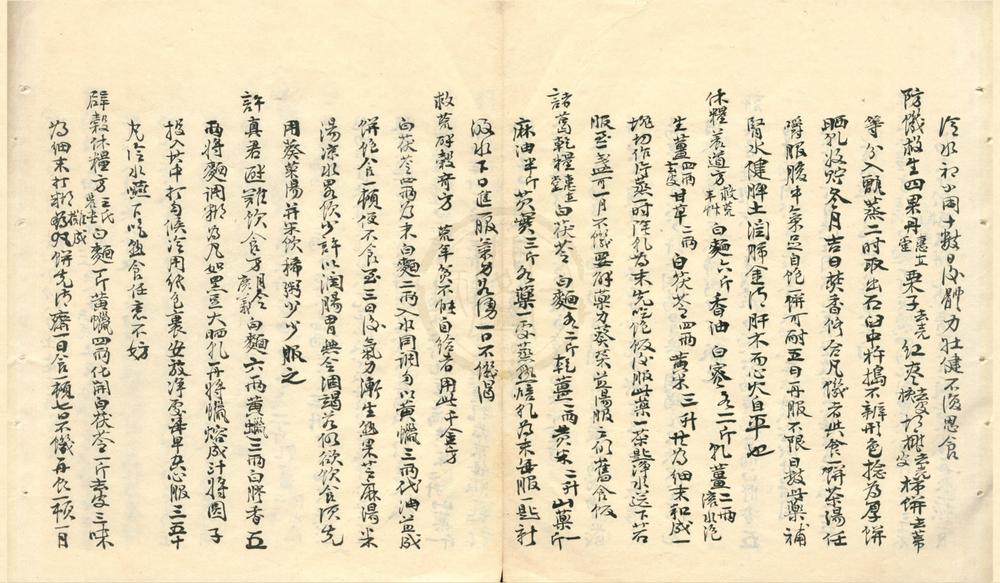 冷水初小開十數日後體力壯健不復思食
防饑救生四果丹 惠立堂 栗子去壳 紅棗去皮核 胡桃去皮 柿餅去蒂
等分入甑蒸二时取出石臼中杵搗不辨形色捻為厚餅
晒乹收貯冬月吉日焚香修合凡饑者此食一餅茶湯任
嚼服腹中氣足自飽一餅可耐五日再服不限日數此藥補
腎水健脾土潤肺金清肝木而心火自平也
休糧養道方 白麵六斤 香油 白蜜各二斤 乹薑二兩滚水泡
生薑四兩去皮 甘草二兩 白茯苓四兩 黄米三升 共為細末和成一
塊切作片蒸一时陰乹為末先吃飽飯後服此藥一茶匙淨水送下若
服至一盞可一月不饑要解藥力葵菜煎湯服之仍舊食飯
諸葛乾糧 惠立堂 白茯苓 白麵各二斤 乾薑一兩 黄米二升 山藥一斤
麻油半斤 芡實三斤 各藥一處蒸熟焙乹為末每服一匙新
汲水下日進一服氣力若湧一日不饑渴
救荒辟穀奇方 荒年貧不能自給者用此千金方
白茯苓四兩為末白麵二兩入水同調匀以黄蠟三兩代油煎成
餅飽食一頓便不食至三日後氣力漸生熟果芝麻湯米
湯凉水畧飲少許以潤腸胃無令涸竭若仍欲飲食須先
用葵菜湯并米飲稀粥少少服之
許真君避難飲食方 月令廣義 白麵六兩 黄蠟三兩 白膠香五
兩將麵調糊為丸如黑豆大晒乹再將蠟熔成汁將圓子
投入汁中打匀候冷用紙包裹安放淨處每早空心服三五十
丸冷水嚥下吃熟食任意不妨
辟穀休糧方 白麵一斤 黄蠟四兩化開 白茯苓一斤去皮 三味
為細末打糊攤成餅先清齋一日食一頓七日不饑再食一頓一月